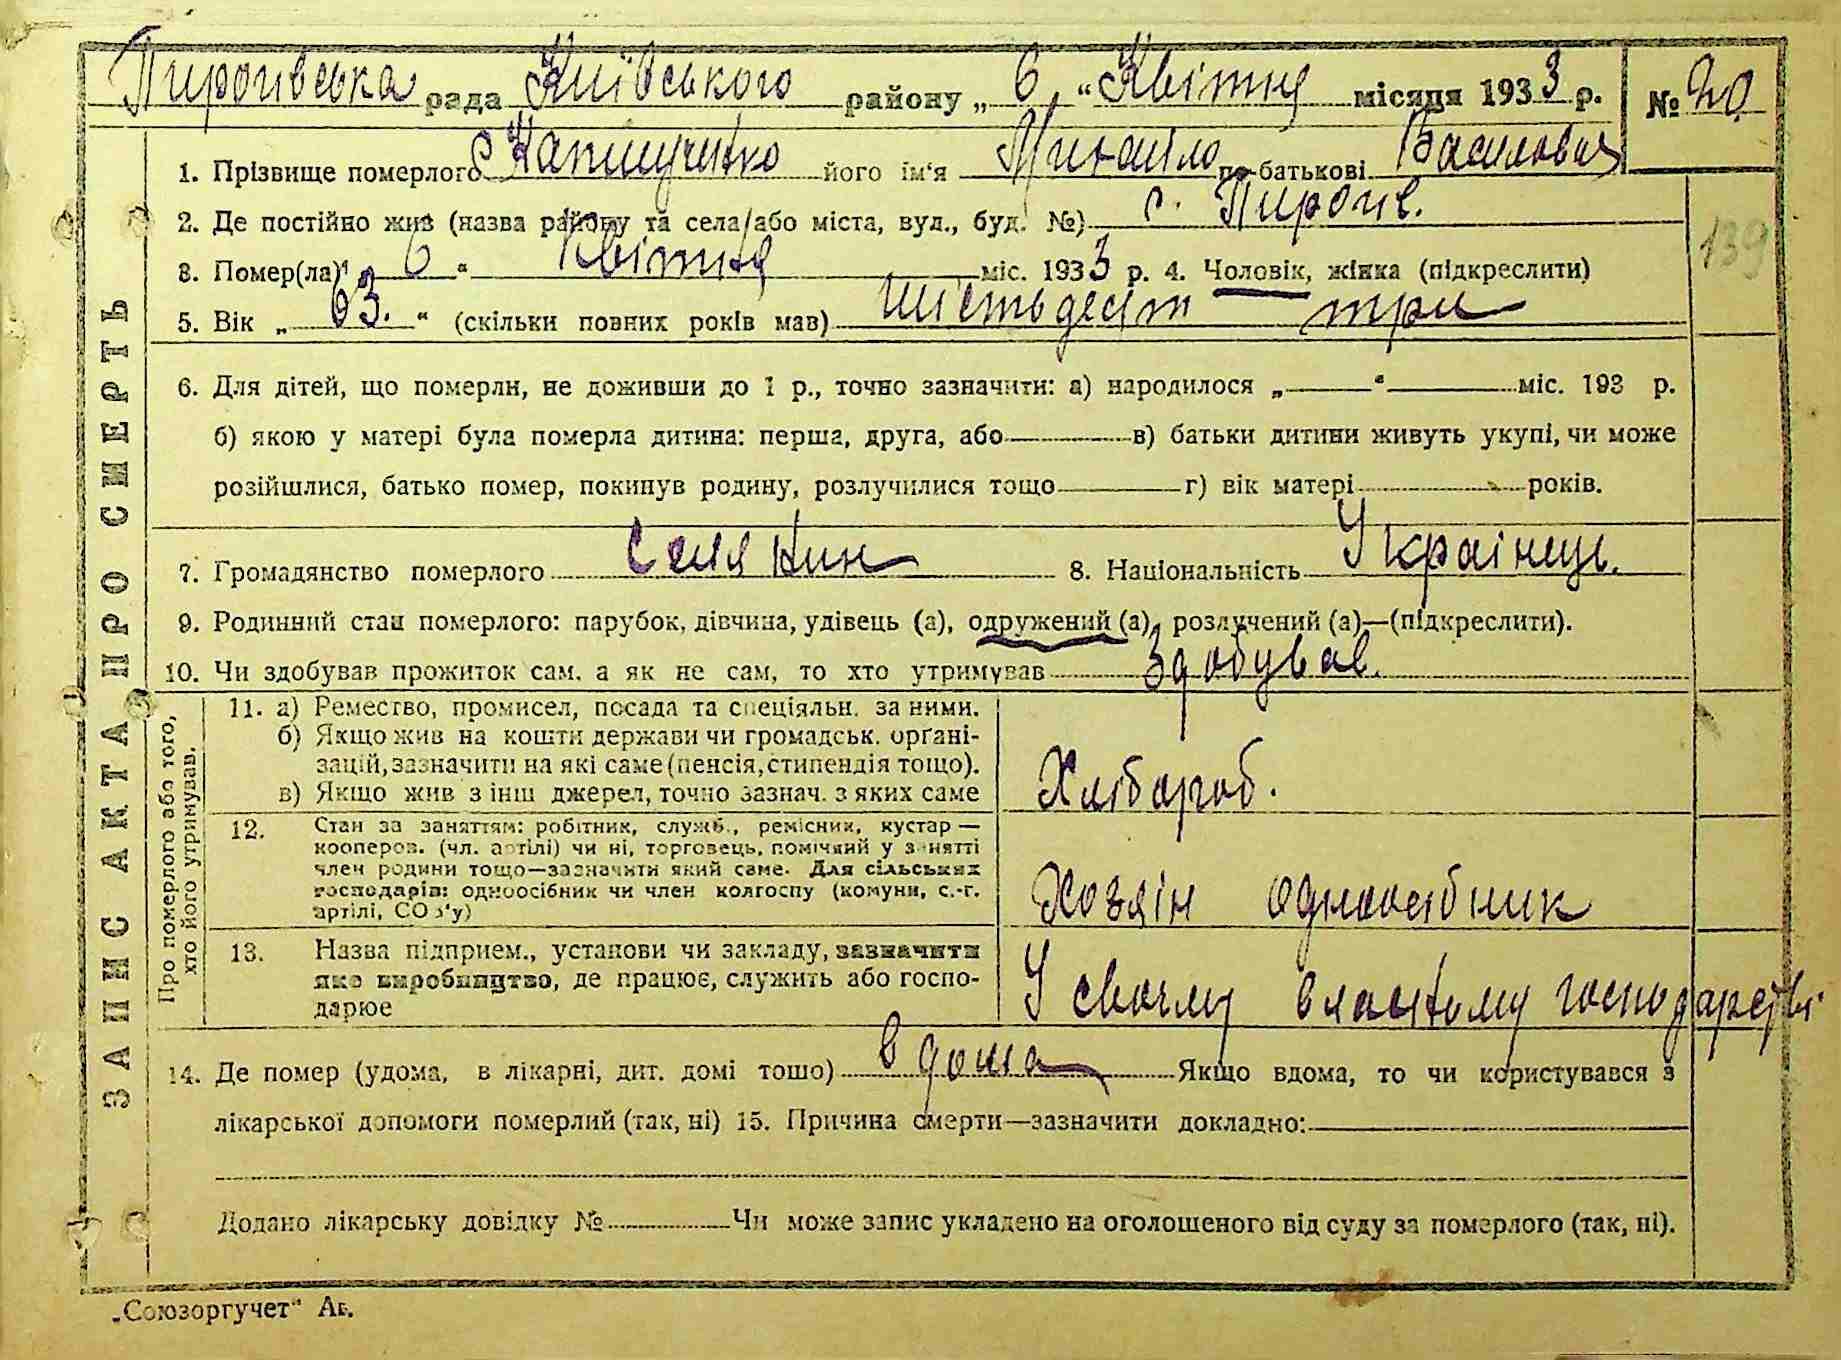 Пирогівська рада Київського району „ 6 “ Квітня місяця 1933 р. № 20
1. Прізвище померлого Капшученко його ім'я Михайло по-батькові Василович
2. Де постійно жив (назва району та села/або міста, вул., буд. №) с. Пирогів.
3. Помер(ла) „ 6 “ Квітня міс. 1933 р. 4. Чоловік, жінка (підкреслити)
139
5. Вік „ 63. “ (скільки повних років мав) шістьдесят три
6. Для дітей, що померли, не доживши до 1 р., точно зазначити: а) народилося „ “ міс. 193 р.
б) якою у матері була померла дитина: перша, друга, або в) батьки дитини живуть укупі, чи може
розійшлися, батько помер, покинув родину, розлучилися тощо г) вік матері років.
7. Громадянство померлого Селянин 8. Національність Українець.
9. Родинний стан померлого: парубок, дівчина, удівець (а), одружений (а), розлучений (а)—(підкреслити).
10. Чи здобував прожиток сам, а як не сам, то хто утримував Здобував.
ЗАПИС АКТА ПРО СМЕРТЬ
Про померлого або того,
хто його утримував.
11. а) Ремество, промисел, посада та спеціяльн. за ними.
б) Якщо жив на кошти держави чи громадськ. органі-
зацій, зазначити на які саме (пенсія, стипендія тощо).
в) Якщо жив з інш джерел, точно зазнач. з яких саме
Хлібороб.
12. Стан за заняттям: робітник, служб., ремісник, кустар —
кооперов. (чл. артілі) чи ні, торговець, помічний у занятті
член родини тощо—зазначити який саме. Для сільських
господарів: одноосібник чи член колгоспу (комуни, с.-г.
артілі, СОЗ'у)
Хозяін одноосібник
13. Назва підприєм., установи чи закладу, зазначити
яке виробництво, де працює, служить або госпо-
дарює
У своєму власному господарстві
14. Де помер (удома, в лікарні, дит. домі тощо) вдома Якщо вдома, то чи користувався з
лікарської допомоги померлий (так, ні) 15. Причина смерти—зазначити докладно:
Додано лікарську довідку № Чи може запис укладено на оголошеного від суду за померлого (так, ні).
„Союзоргучет“ Ав.